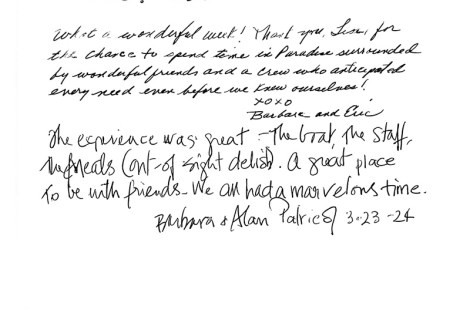 What a wonderful week! Thank you, Lisa, for
the chance to spend time in Paradise surrounded
by wonderful friends and a crew who anticipated
every need even before we knew ourselves!
XOXO
Barbara and Eric
The experience was great - The boat, The Staff,
The Meals (out-of sight delish). A great place
To be with friends - We all had a marvelous time.
Barbara + Alan 3-23-24